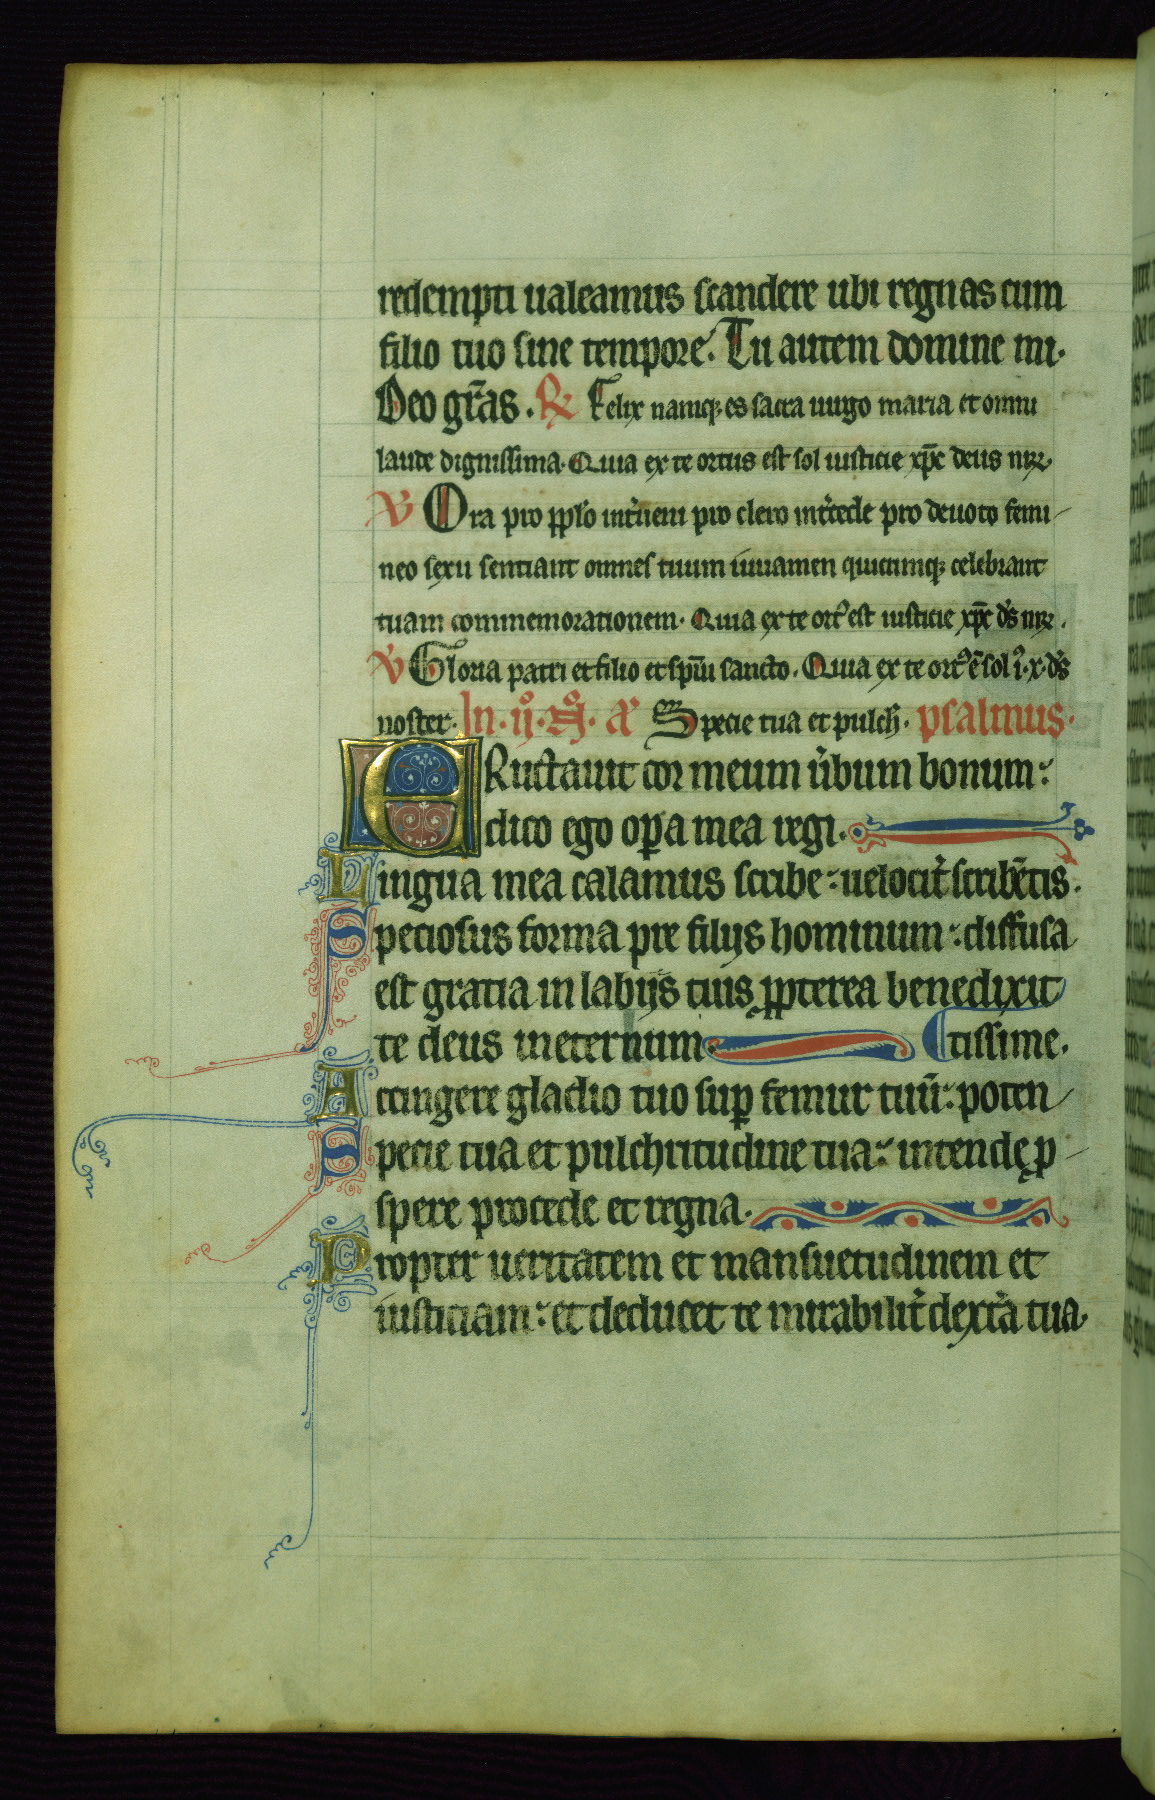 redempti ualeamus scandere ubi regnas cum
filio tuo sine tempore. Tu autem domine mi.
Deo gr̄as. R̸ Felix namq; es sacra uirgo maria et omni
laude dignissima. Quia ex te ortus est sol iusticie xp̄c deus nr̄.
V̸ Ora pro pplo int̉ueni pro clero int̉cede pro deuoto femi
neo sexu sentiant omnes tuum iuuamen quicumq; celebrant
tuam commemorationem. Quia ex te ort᾿ est iusticie xp̄c ds̉ nr̄.
V̸ Gloria patri et filio et sp̄ui sancto. Quia ex te ort᾿ ē sol i᾿. x. ds̉
noster. In. ij. N᾿. a᾿ Specie tua et pulch. psalmus.
ERuctauit cor meum ủbum bonum:
dico ego oꝑa mea regi.
Lingua mea calamus scribe: uelocit̉ scribētis.
Speciosus forma pre filijs hominum: diffusa
est gratia in labijs tuis ꝓpterea benedixit
te deus in eternum
tissime.
Accingere gladio tuo suꝑ femur tuū: poten
Specie tua et pulchritudine tua: intende ꝓ
spere procede et regna.
Propter ueritatem et mansuetudinem et
iusticiam: et deducet te mirabilit̉ dext̉a tua.